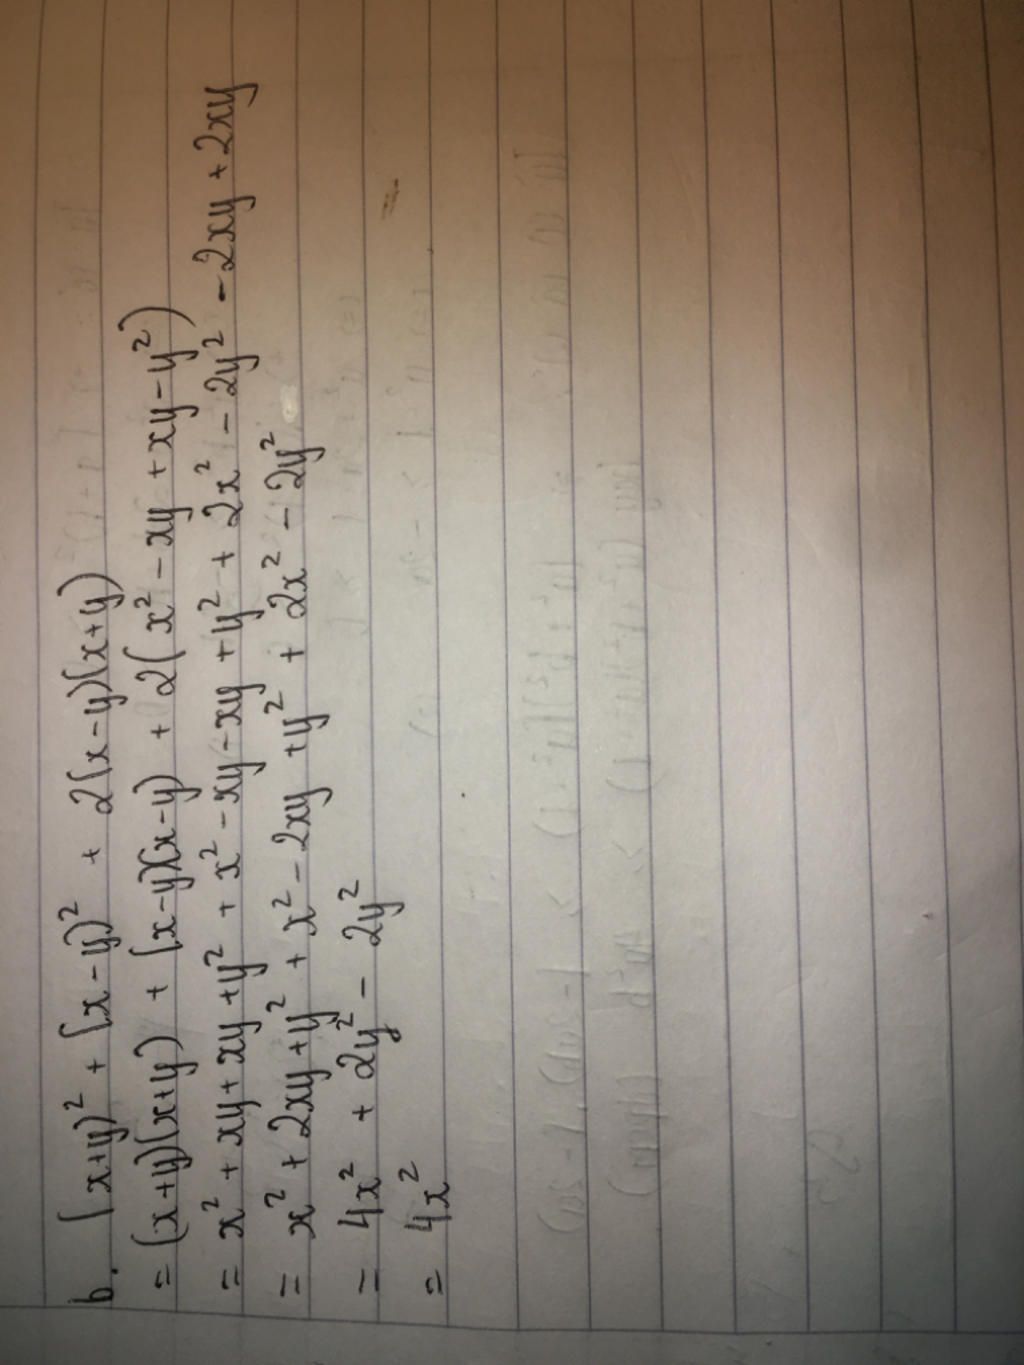 b. (x+y)² + (x-y)² + 2(x-y)(x+y)
= (x+y)(x+y) + (x-y)(x-y) + 2(x² - xy + xy - y²)
= x² + xy + xy + y² + x² - xy - xy + y² + 2x² - 2y² - 2xy + 2xy
= x² + 2xy + y² + x² - 2xy + y² + 2x² - 2y²
= 4x² + 2y² - 2y²
= 4x²